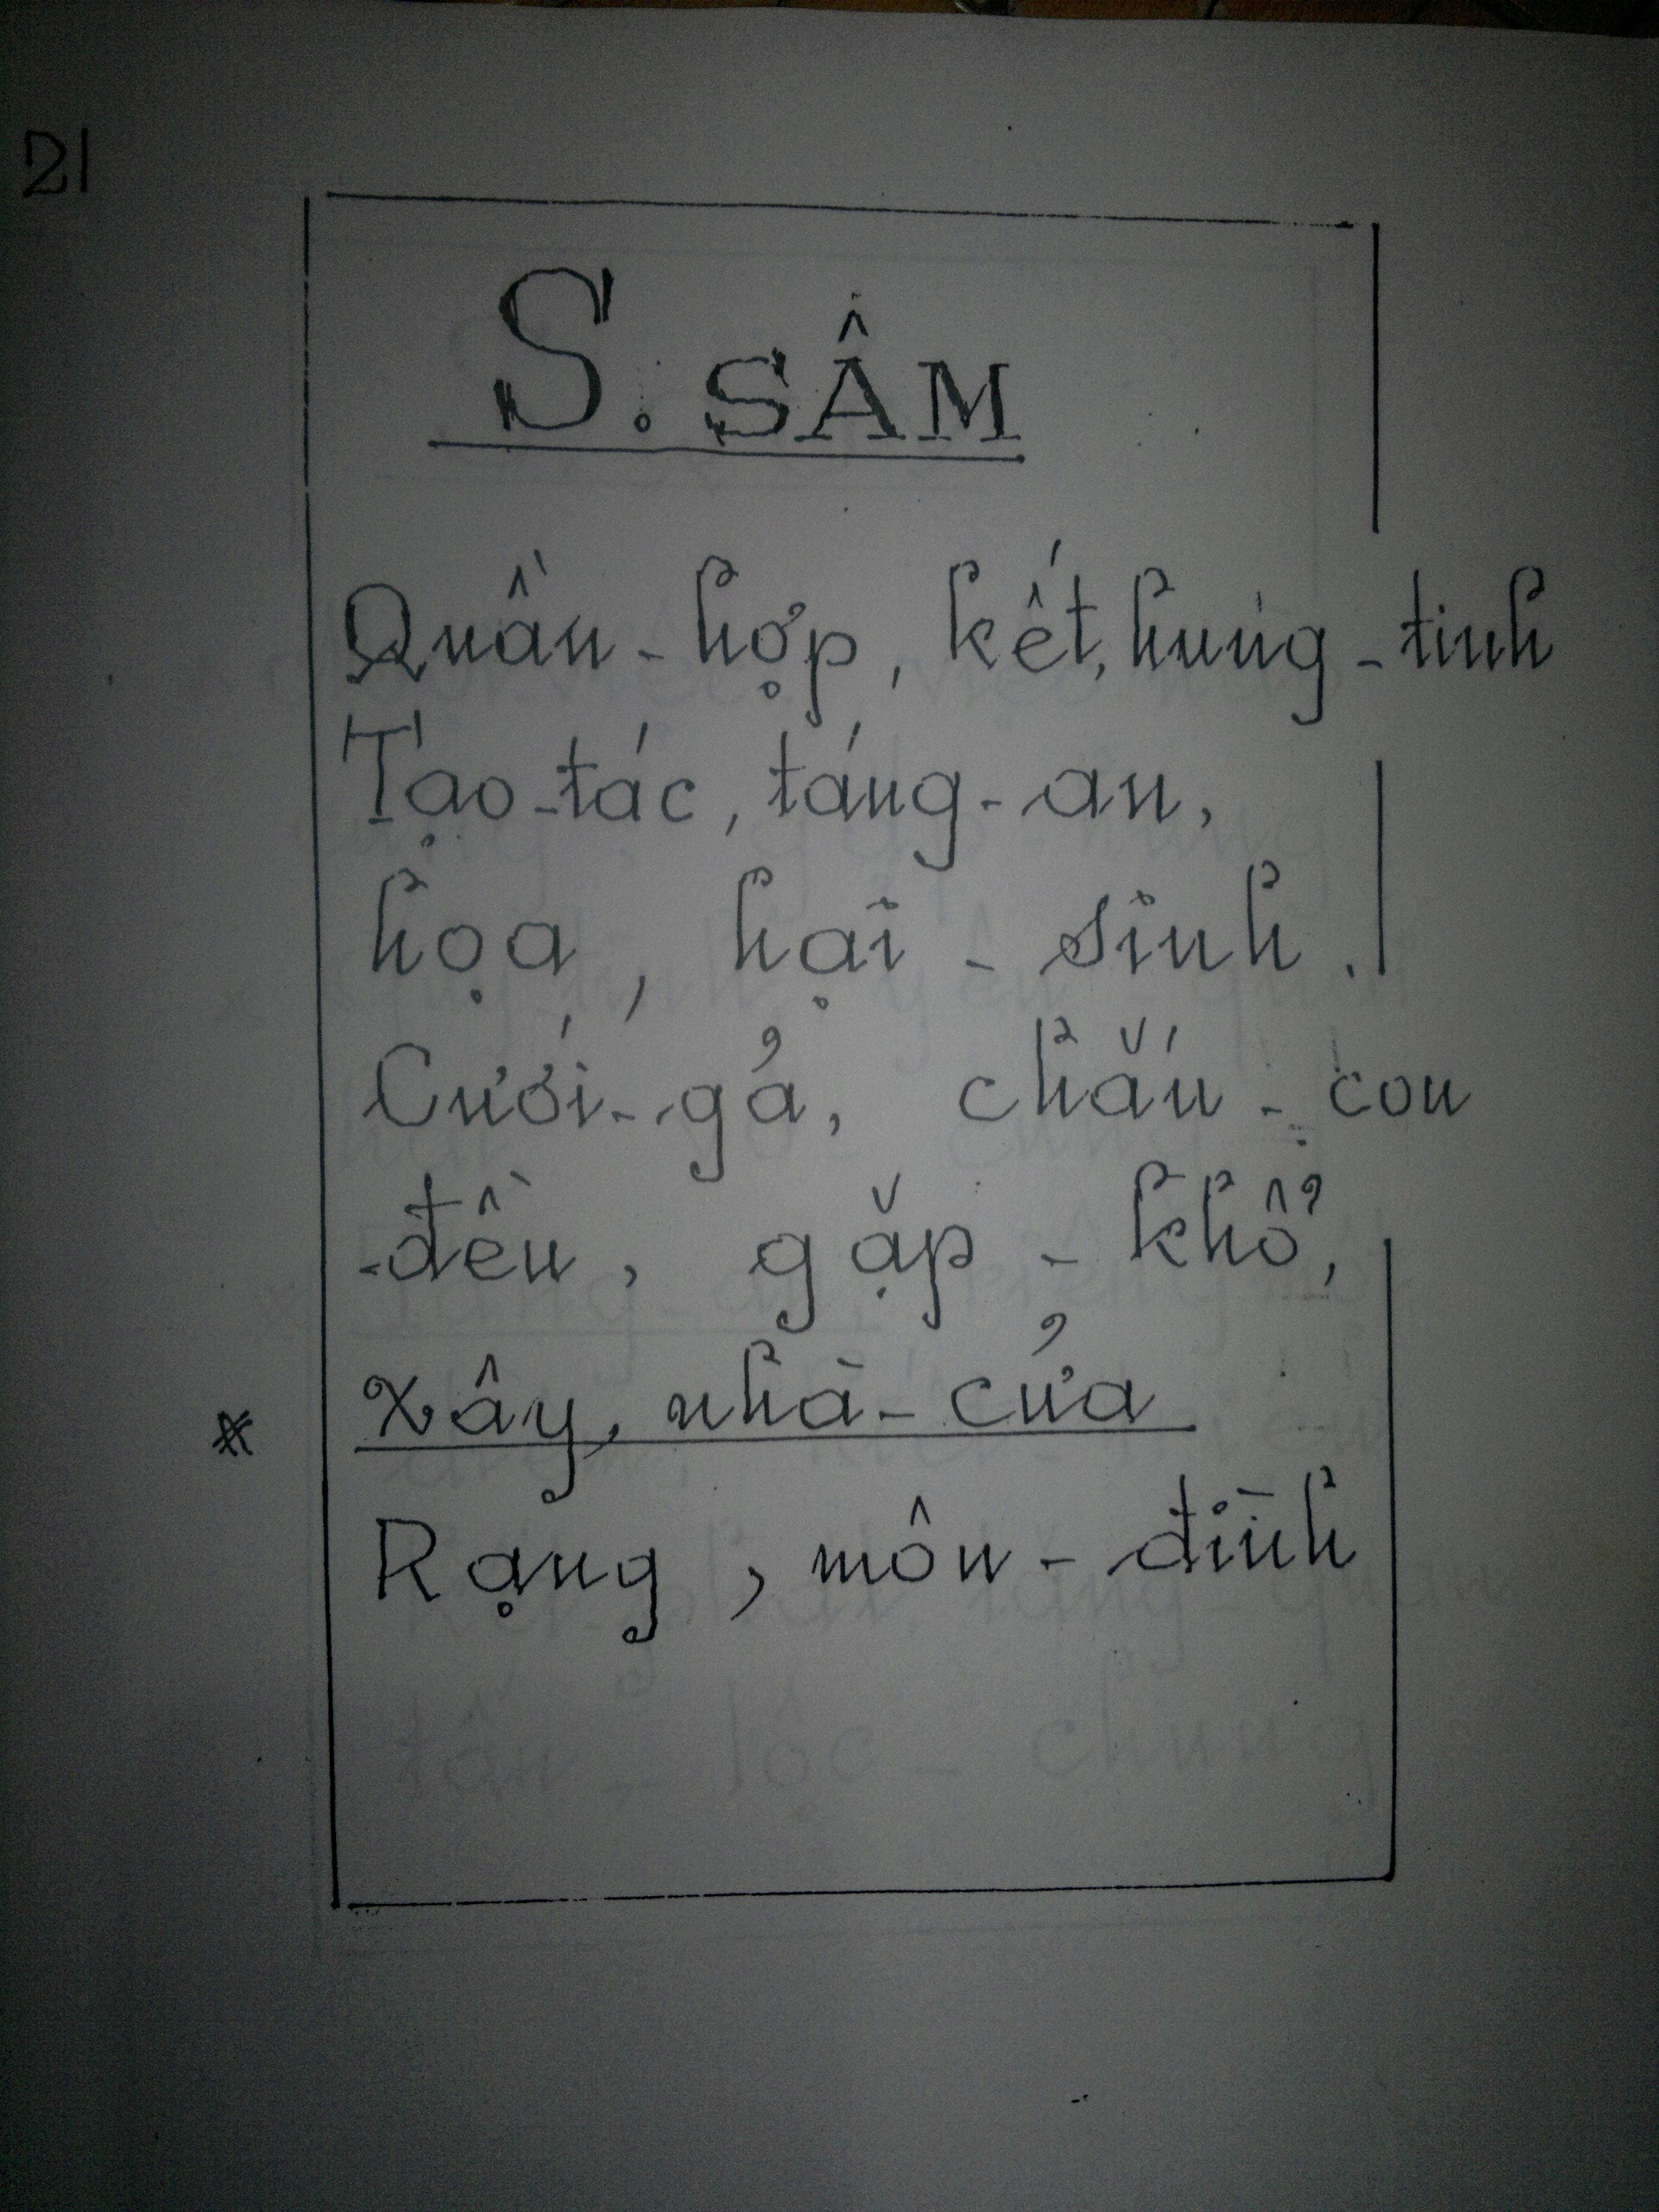 21
S. SÂM
Quần - hợp, kết, hung - tinh
Tạo - tác, táng - an,
họa, hại - sinh.
Cưới - gả, chắn - con
- đều, gặp - khổ,
* Xây, nhà - cửa
Rạng, môn - đình